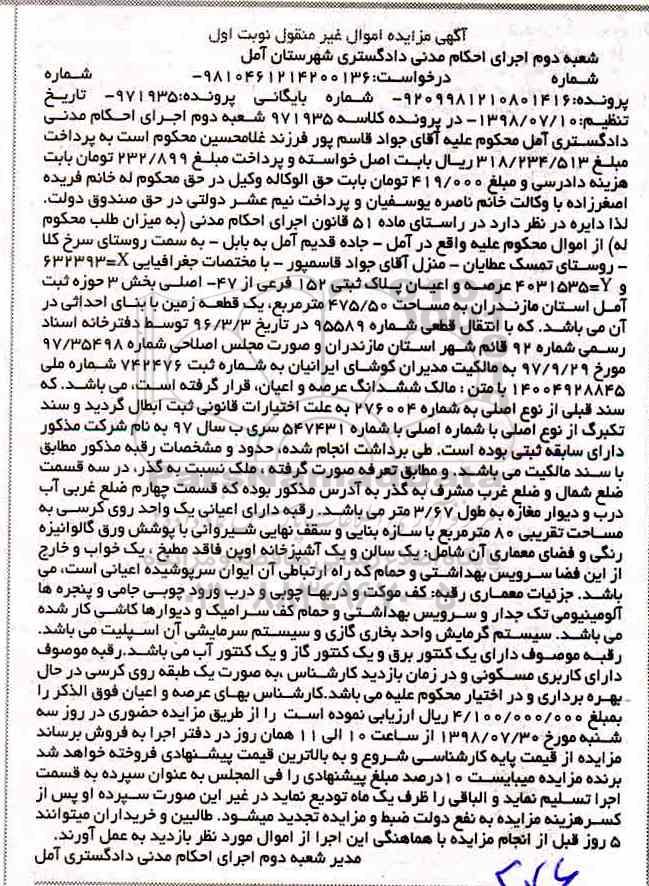 آگهی مزایده اموال غیر منقول نوبت اول
شعبه دوم اجرای احکام مدنی دادگستری شهرستان آمل
شماره درخواست:۹۸۱۰۴۶۱۲۱۴۲۰۰۱۳۶- شماره
پرونده:۹۲۰۹۹۸۱۲۱۰۸۰۱۴۱۶- شماره بایگانی پرونده:۹۷۱۹۳۵- تاریخ
تنظیم:۱۳۹۸/۰۷/۱۰- در پرونده کلاسه ۹۷۱۹۳۵ شعبه دوم اجرای احکام مدنی
دادگستری آمل محکوم علیه آقای جواد قاسم پور فرزند غلامحسین محکوم است به پرداخت
مبلغ ۳۱۸/۲۳۴/۵۱۳ ریال بابت اصل خواسته و پرداخت مبلغ ۲۳۲/۸۹۹ تومان بابت
هزینه دادرسی و مبلغ ۴۱۹/۰۰۰ تومان بابت حق الوکاله وکیل در حق محکوم له خانم فریده
اصغرزاده با وکالت خانم ناصره یوسفیان و پرداخت نیم عشر دولتی در حق صندوق دولت.
لذا دایره در نظر دارد در راستای ماده ۵۱ قانون اجرای احکام مدنی (به میزان طلب محکوم
له) از اموال محکوم علیه واقع در آمل - جاده قدیم آمل به بابل - به سمت روستای سرخ کلا
- روستای تمسک عطایان - منزل آقای جواد قاسمپور - با مختصات جغرافیایی X=۶۳۲۳۹۳
و Y=۴۰۳۱۵۳۵ عرصه و اعیان پلاک ثبتی ۱۵۲ فرعی از ۴۷- اصلی بخش ۳ حوزه ثبت
آمل استان مازندران به مساحت ۴۷۵/۵۰ مترمربع، یک قطعه زمین با بنای احداثی در
آن می باشد. که با انتقال قطعی شماره ۹۵۵۸۹ در تاریخ ۹۶/۳/۳ توسط دفترخانه اسناد
رسمی شماره ۹۲ قائم شهر استان مازندران و صورت مجلس اصلاحی شماره ۹۷/۳۵۴۹۸
مورخ ۹۷/۹/۲۹ به مالکیت مدیران کوشای ایرانیان به شماره ثبت ۷۴۲۴۷۶ شماره ملی
۱۴۰۰۴۹۲۸۸۴۵ با متن : مالک ششدانگ عرصه و اعیان، قرار گرفته است، می باشد. که
سند قبلی از نوع اصلی به شماره ۲۷۶۰۰۴ به علت اختیارات قانونی ثبت ابطال گردید و سند
تکبرگ از نوع اصلی با شماره اصلی با شماره ۵۴۷۴۳۱ سری ب سال ۹۷ به نام شرکت مذکور
دارای سابقه ثبتی بوده است. طی برداشت انجام شده، حدود و مشخصات رقبه مذکور مطابق
با سند مالکیت می باشد. و مطابق تعرفه صورت گرفته ، ملک نسبت به گذر، در سه قسمت
ضلع شمال و ضلع غرب مشرف به گذر به آدرس مذکور بوده که قسمت چهارم ضلع غربی آب
درب و دیوار مغازه به طول ۳/۶۷ متر می باشد. رقبه دارای اعیانی یک واحد روی کرسی به
مساحت تقریبی ۸۰ مترمربع با سازه بنایی و سقف نهایی شیروانی با پوشش ورق گالوانیزه
رنگی و فضای معماری آن شامل: یک سالن و یک آشپزخانه اوپن فاقد مطبخ ، یک خواب و خارج
از این فضا سرویس بهداشتی و حمام که راه ارتباطی آن ایوان سرپوشیده اعیانی است، می
باشد. جزئیات معماری رقبه: کف موکت و دربها چوبی و درب ورود چوبی جامی و پنجره ها
آلومینیومی تک جدار و سرویس بهداشتی و حمام کف سرامیک و دیوارها کاشی کار شده
می باشد. سیستم گرمایش واحد بخاری گازی و سیستم سرمایشی آن اسپلیت می باشد.
رقبه موصوف دارای یک کنتور برق و یک کنتور گاز و یک کنتور آب می باشد.رقبه موصوف
دارای کاربری مسکونی و در زمان بازدید کارشناس ،به صورت یک طبقه روی کرسی در حال
بهره برداری و در اختیار محکوم علیه می باشد.کارشناس بهای عرصه و اعیان فوق الذکر را
بمبلغ ۴/۱۰۰/۰۰۰/۰۰۰ ریال ارزیابی نموده است را از طریق مزایده حضوری در روز سه
شنبه مورخ ۱۳۹۸/۰۷/۳۰ از ساعت ۱۰ الی ۱۱ همان روز در دفتر اجرا به فروش برساند
مزایده از قیمت پایه کارشناسی شروع و به بالاترین قیمت پیشنهادی فروخته خواهد شد
برنده مزایده میبایست ۱۰درصد مبلغ پیشنهادی را فی المجلس به عنوان سپرده به قسمت
اجرا تسلیم نماید و الباقی را ظرف یک ماه تودیع نماید در غیر این صورت سپرده او پس از
کسرهزینه مزایده به نفع دولت ضبط و مزایده تجدید میشود. طالبین و خریداران میتوانند
۵ روز قبل از انجام مزایده با هماهنگی این اجرا از اموال مورد نظر بازدید به عمل آورند.
مدیر شعبه دوم اجرای احکام مدنی دادگستری آمل